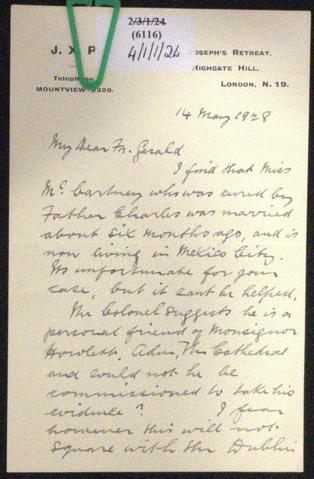 2/3/1/24
(6116)
4/1/1/24
J. X. P
OSEPH'S RETREAT,
HIGHGATE HILL,
Telephone
LONDON, N. 19.
MOUNTVIEW 2320.
14 May 1928
My Dear Fr. Gerald
I find that Miss
McCartney who was cured by
Father Charles was married
about six months ago, and is
now living in Mexico City.
Its unfortunate for your
case, but it cant be helped.
The Colonel suggests he is a
personal friend of Monsignor
Howleth. Adm, The Cathedral
and could not he be
commissioned to take his
evidence? I fear
however this will not
square with the Dublin